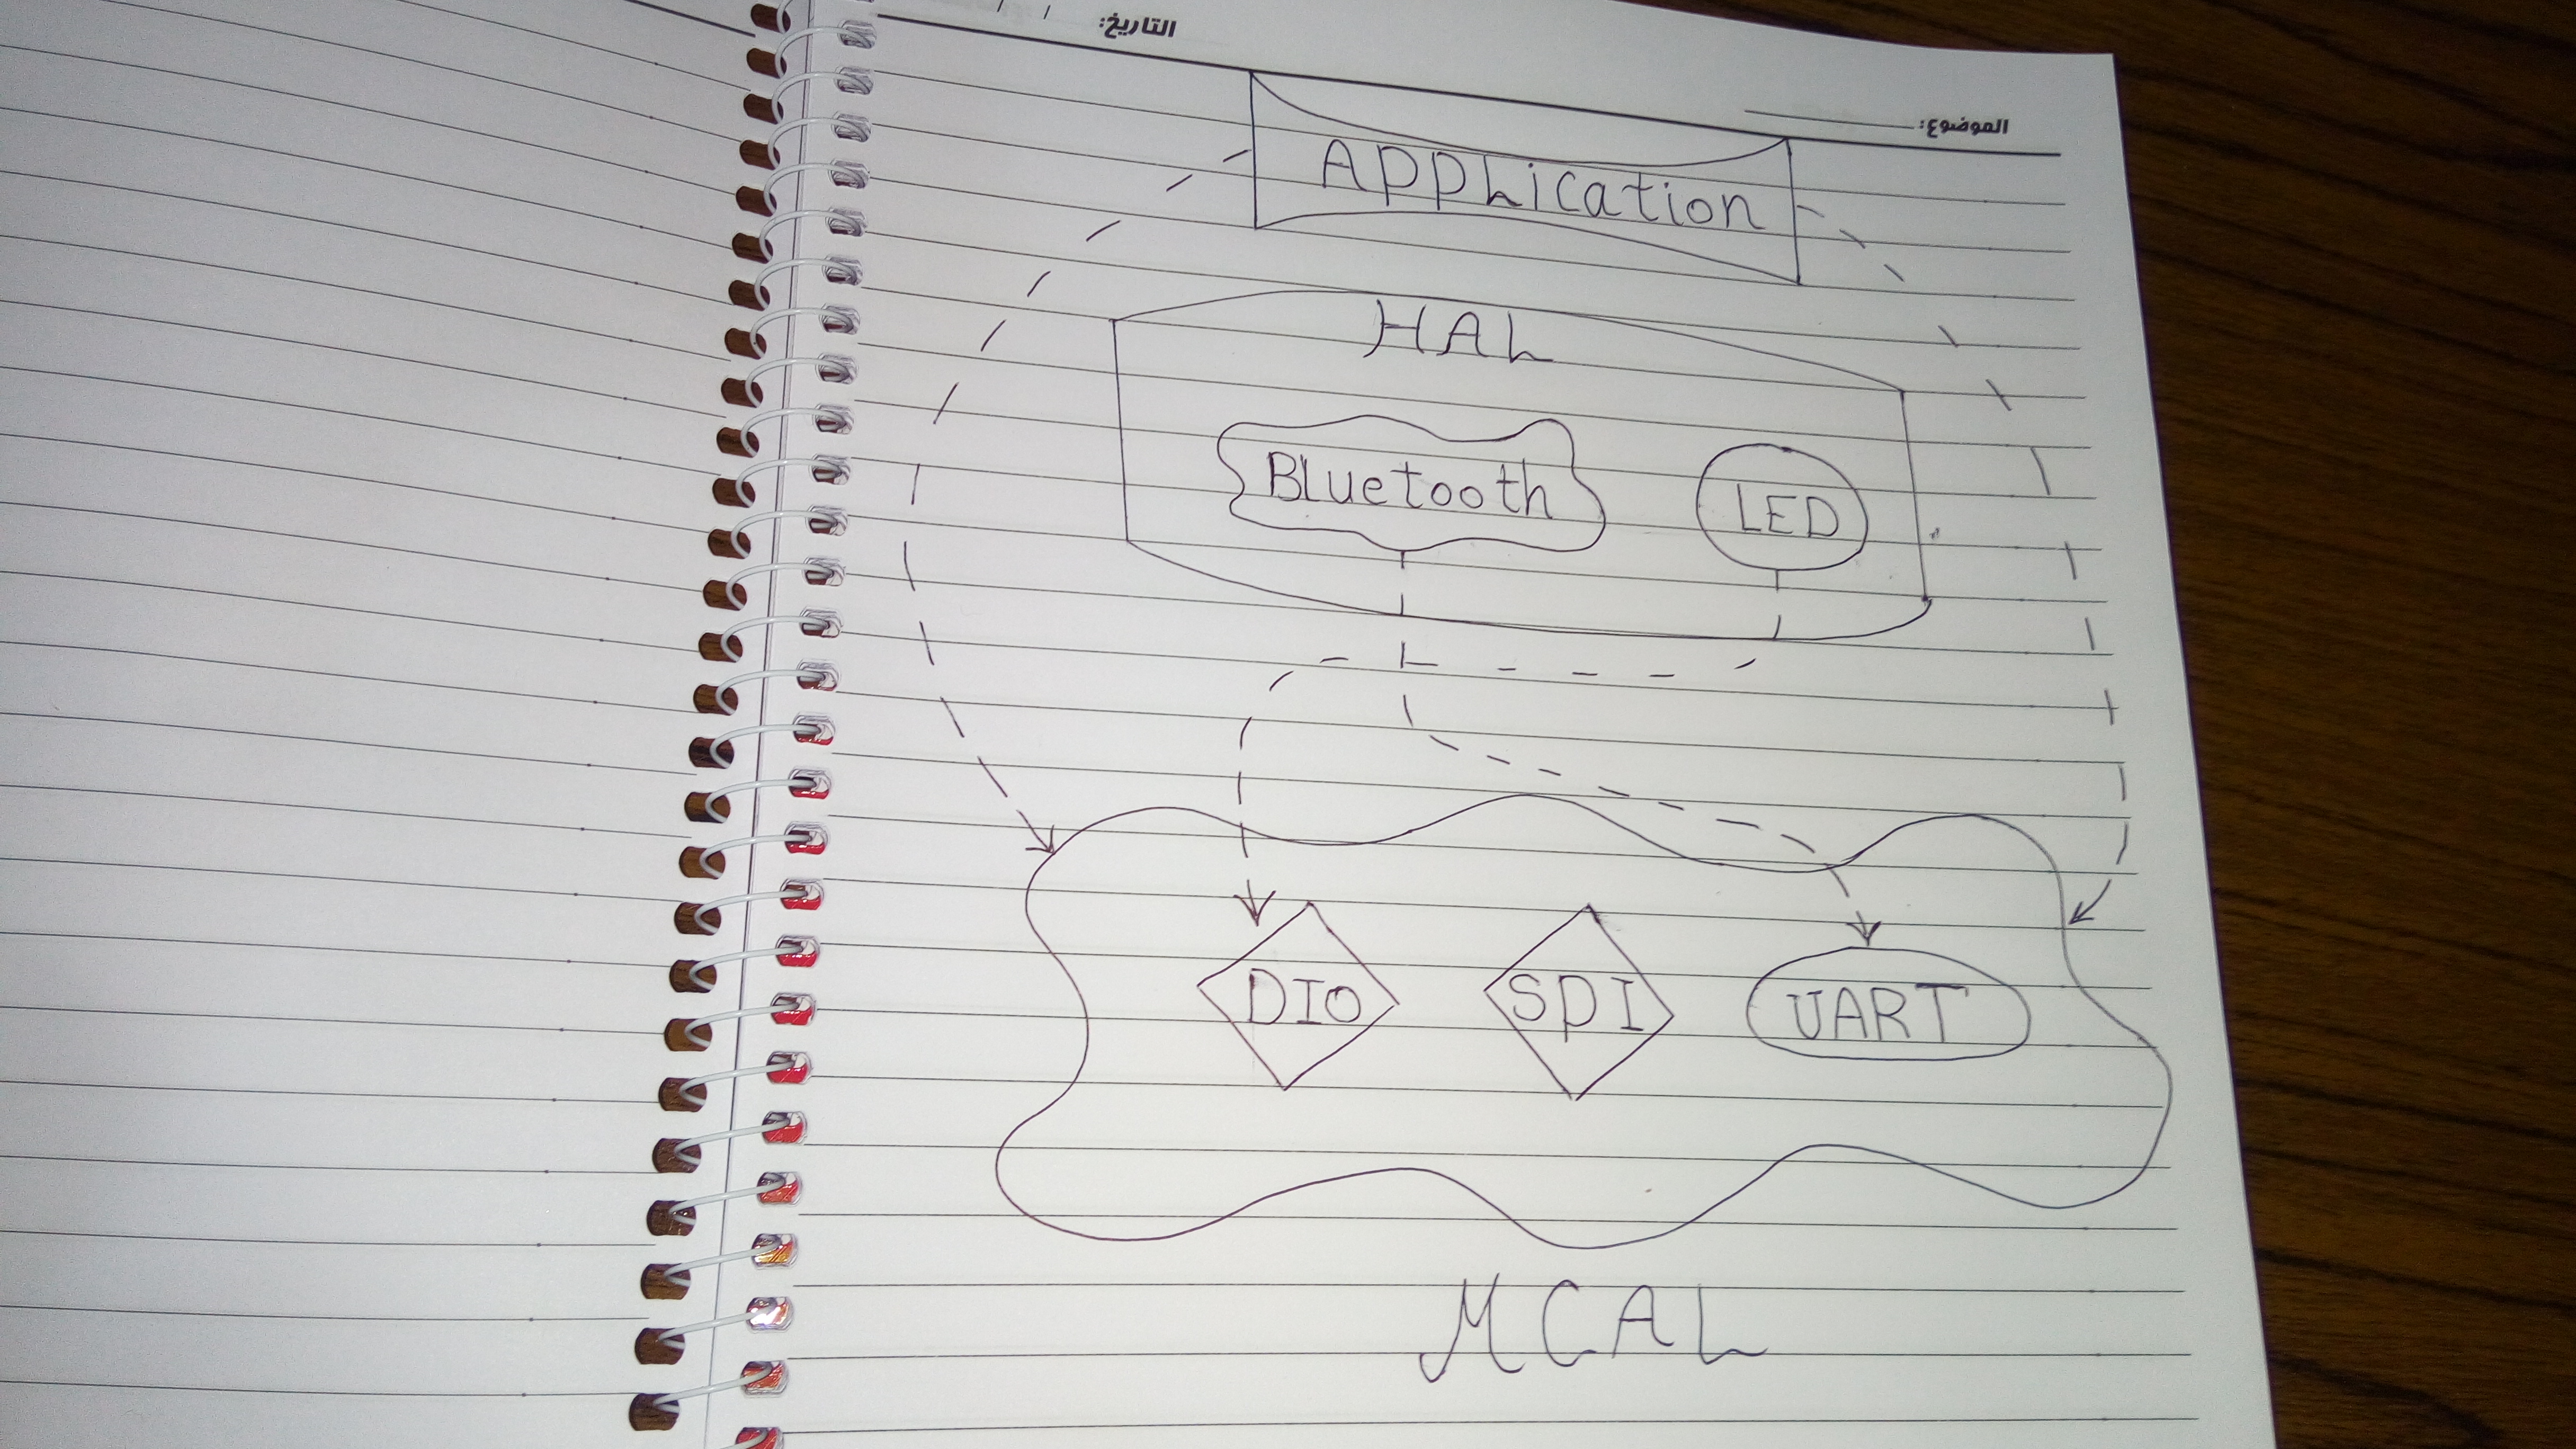 التاريخ: / /
الموضوع:
Application
HAL
Bluetooth
LED
DIO
SPI
UART
MCAL